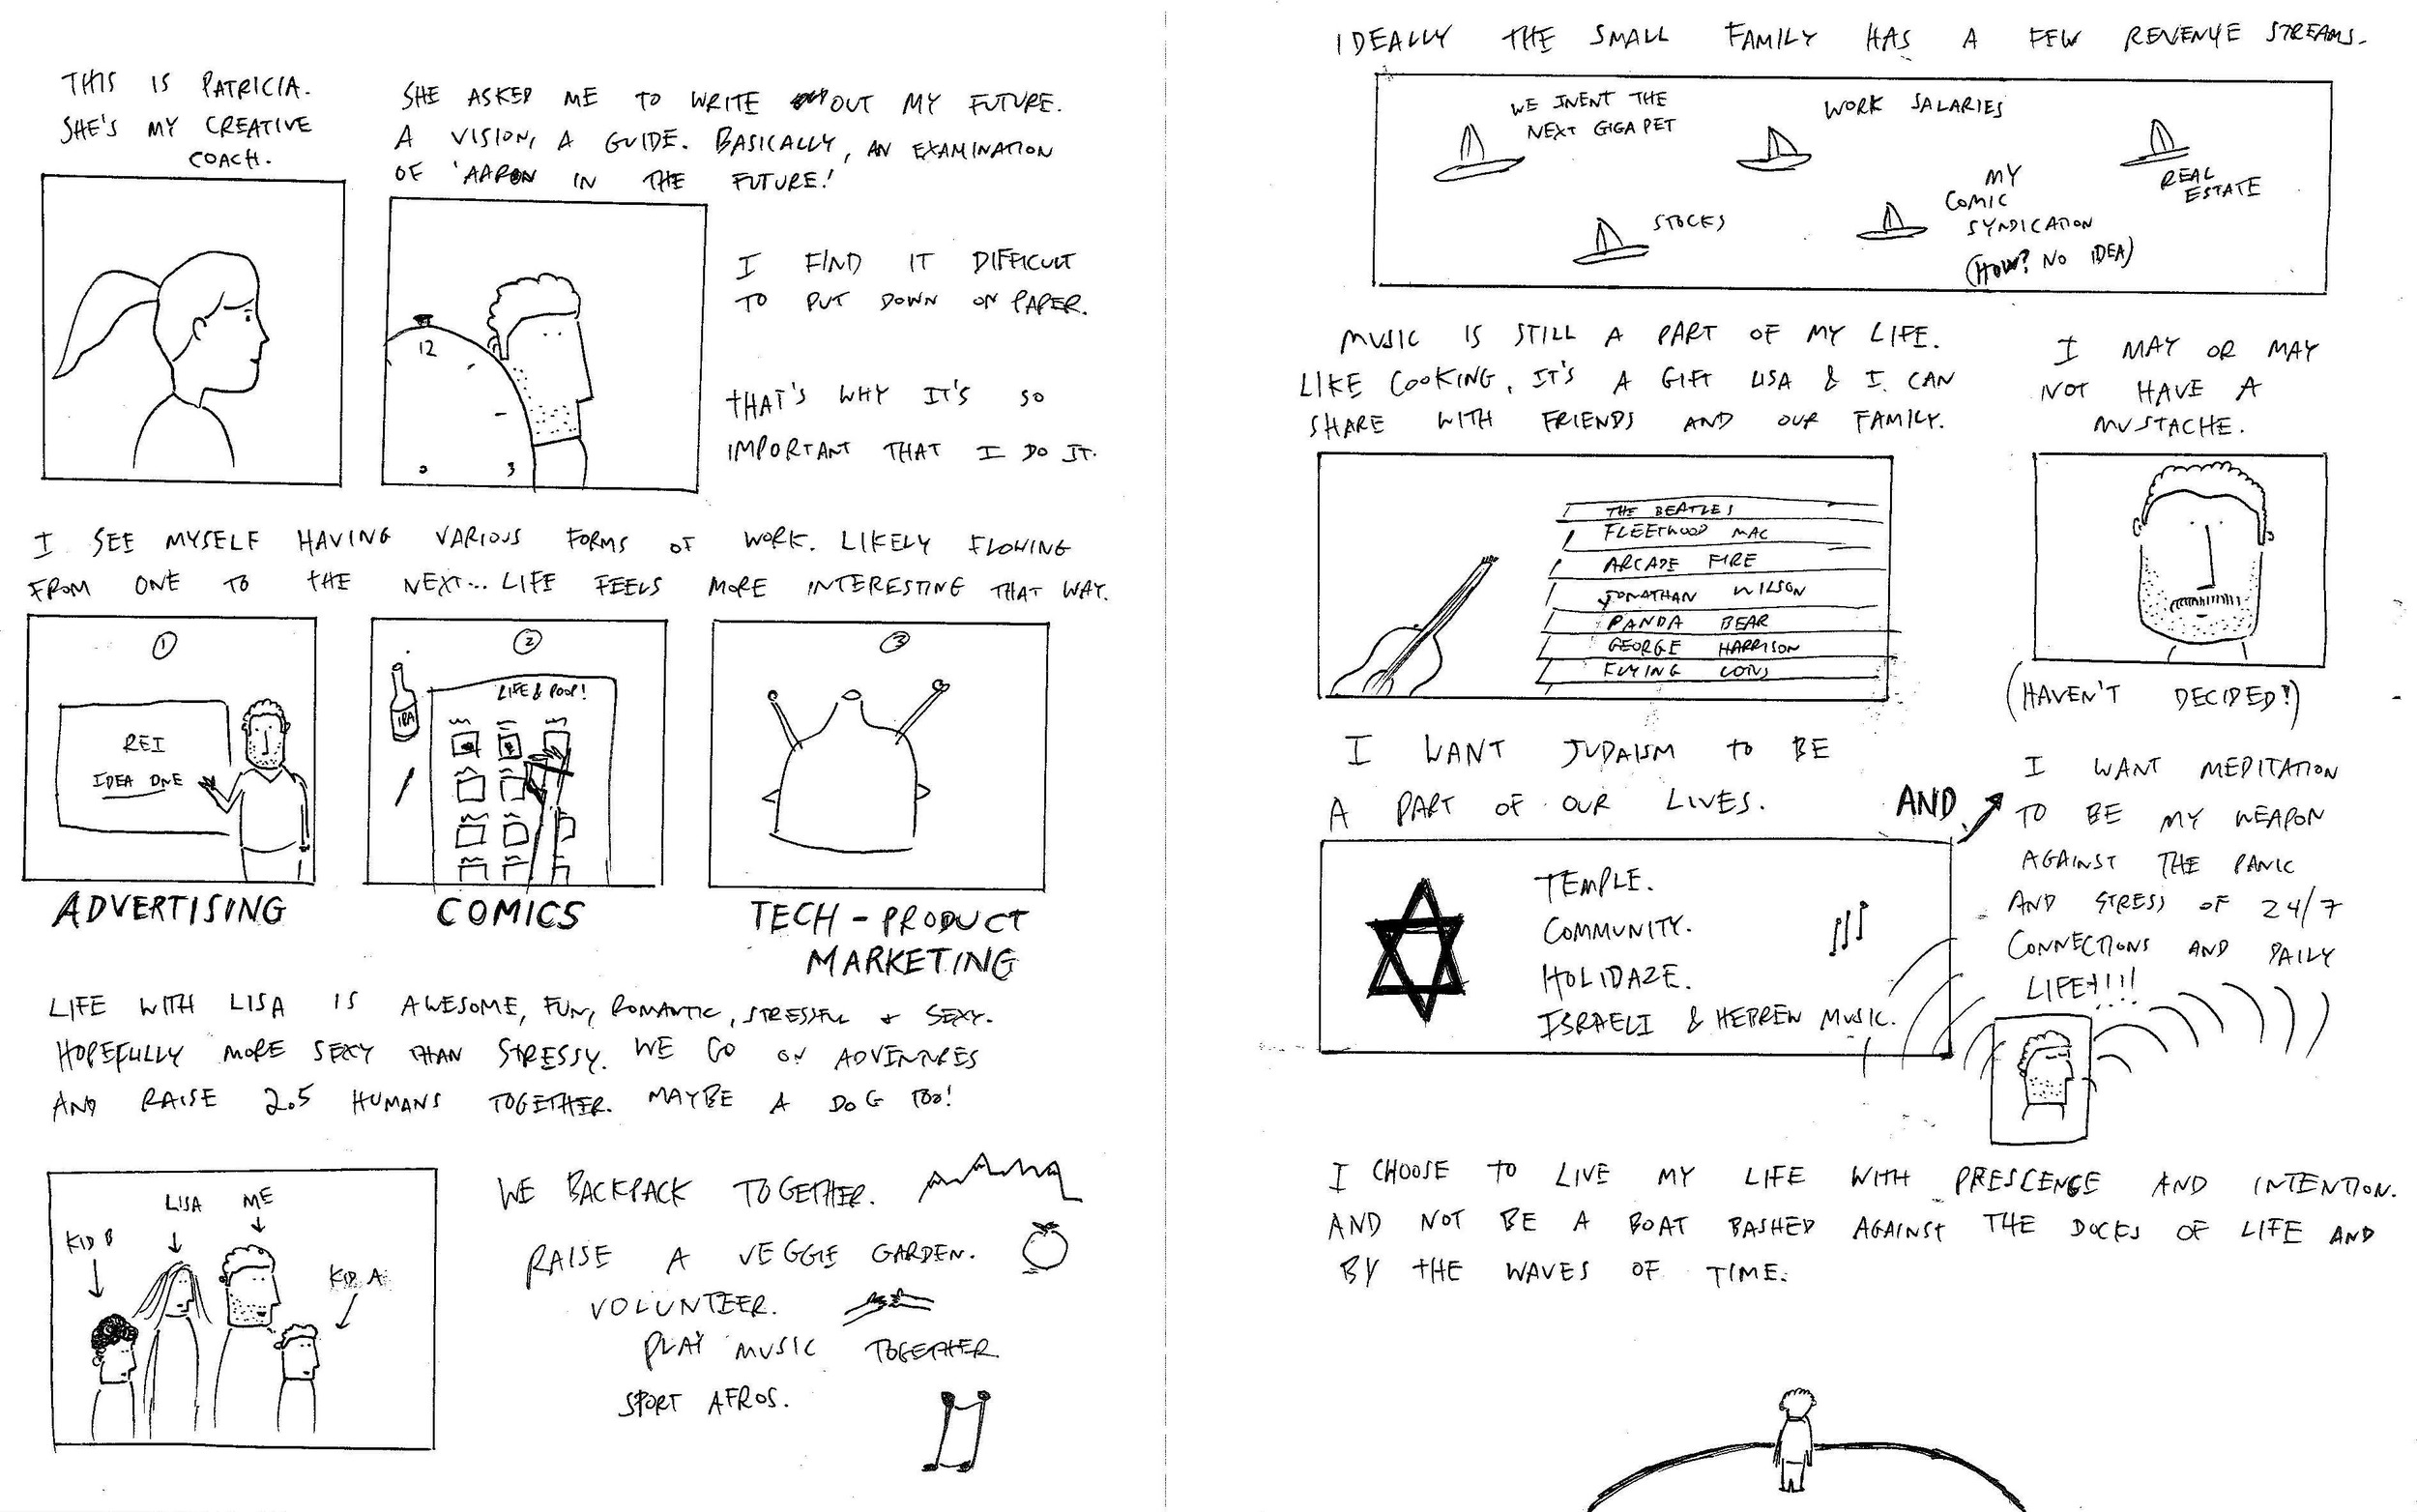 THIS IS PATRICIA.
SHE'S MY CREATIVE
COACH.
SHE ASKED ME TO WRITE OUT MY FUTURE.
A VISION, A GUIDE. BASICALLY, AN EXAMINATION
OF 'AARON IN THE FUTURE!
12
3
I FIND IT DIFFICULT
TO PUT DOWN ON PAPER.
THAT'S WHY IT'S SO
IMPORTANT THAT I DO IT.
I SEE MYSELF HAVING VARIOUS FORMS OF WORK. LIKELY FLOWING
FROM ONE TO THE NEXT... LIFE FEELS MORE INTERESTING THAT WAY.
1
REI
IDEA ONE
ADVERTISING
2
IPA
LIFE & POOP!
COMICS
3
TECH - PRODUCT
MARKETING
LIFE WITH LISA IS AWESOME, FUN, ROMANTIC, STRESSFUL + SEXY.
HOPEFULLY MORE SEXY THAN STRESSY. WE GO ON ADVENTURES
AND RAISE 2.5 HUMANS TOGETHER. MAYBE A DOG TOO!
KID B
LISA
ME
KID A
WE BACKPACK TOGETHER.
RAISE A VEGGIE GARDEN.
VOLUNTEER.
PLAY MUSIC TOGETHER
SPORT AFROS.
IDEALLY THE SMALL FAMILY HAS A FEW REVENUE STREAMS.
WE INENT THE
NEXT GIGA PET
WORK SALARIES
REAL
ESTATE
STOCKS
MY
COMIC
SYNDICATION
(HOW? NO IDEA)
MUSIC IS STILL A PART OF MY LIFE.
LIKE COOKING, IT'S A GIFT LISA & I CAN
SHARE WITH FRIENDS AND OUR FAMILY.
THE BEATLES
FLEETWOOD MAC
ARCADE FIRE
JONATHAN WILSON
PANDA BEAR
GEORGE HARRISON
FLYING
I MAY OR MAY
NOT HAVE A
MUSTACHE.
(HAVEN'T DECIDED!)
I WANT JUDAISM TO BE
A PART OF OUR LIVES.
TEMPLE.
COMMUNITY.
HOLIDAZE.
ISRAELI & HEBREW MUSIC.
AND
I WANT MEDITATION
TO BE MY WEAPON
AGAINST THE PANIC
AND STRESS OF 24/7
CONNECTIONS AND DAILY
LIFE!!!!
I CHOOSE TO LIVE MY LIFE WITH PRESCENCE AND INTENTION.
AND NOT BE A BOAT BASHED AGAINST THE DOCKS OF LIFE AND
BY THE WAVES OF TIME.